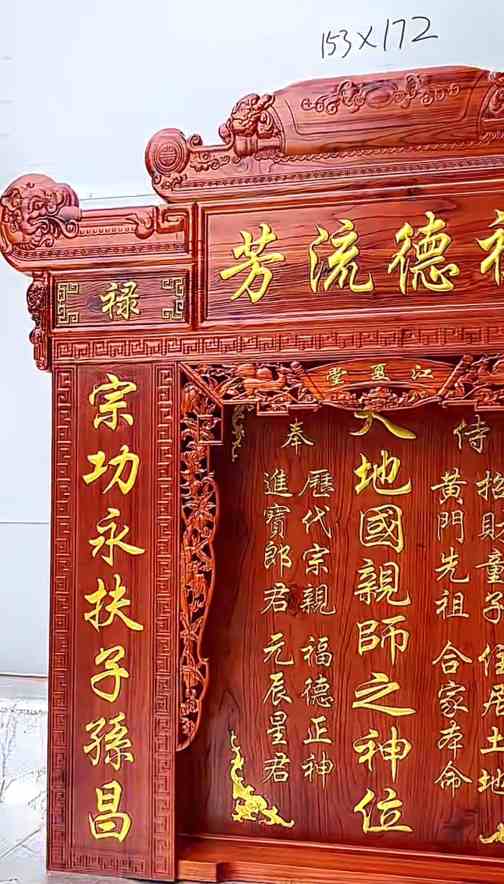 153×172
德流芳
禄
江夏堂
侍奉
招財童子 住居土地
黃門先祖 合家本命
天地國親師之神位
歷代宗親 福德正神
進寶郎君 元辰星君
宗功永扶子孫昌